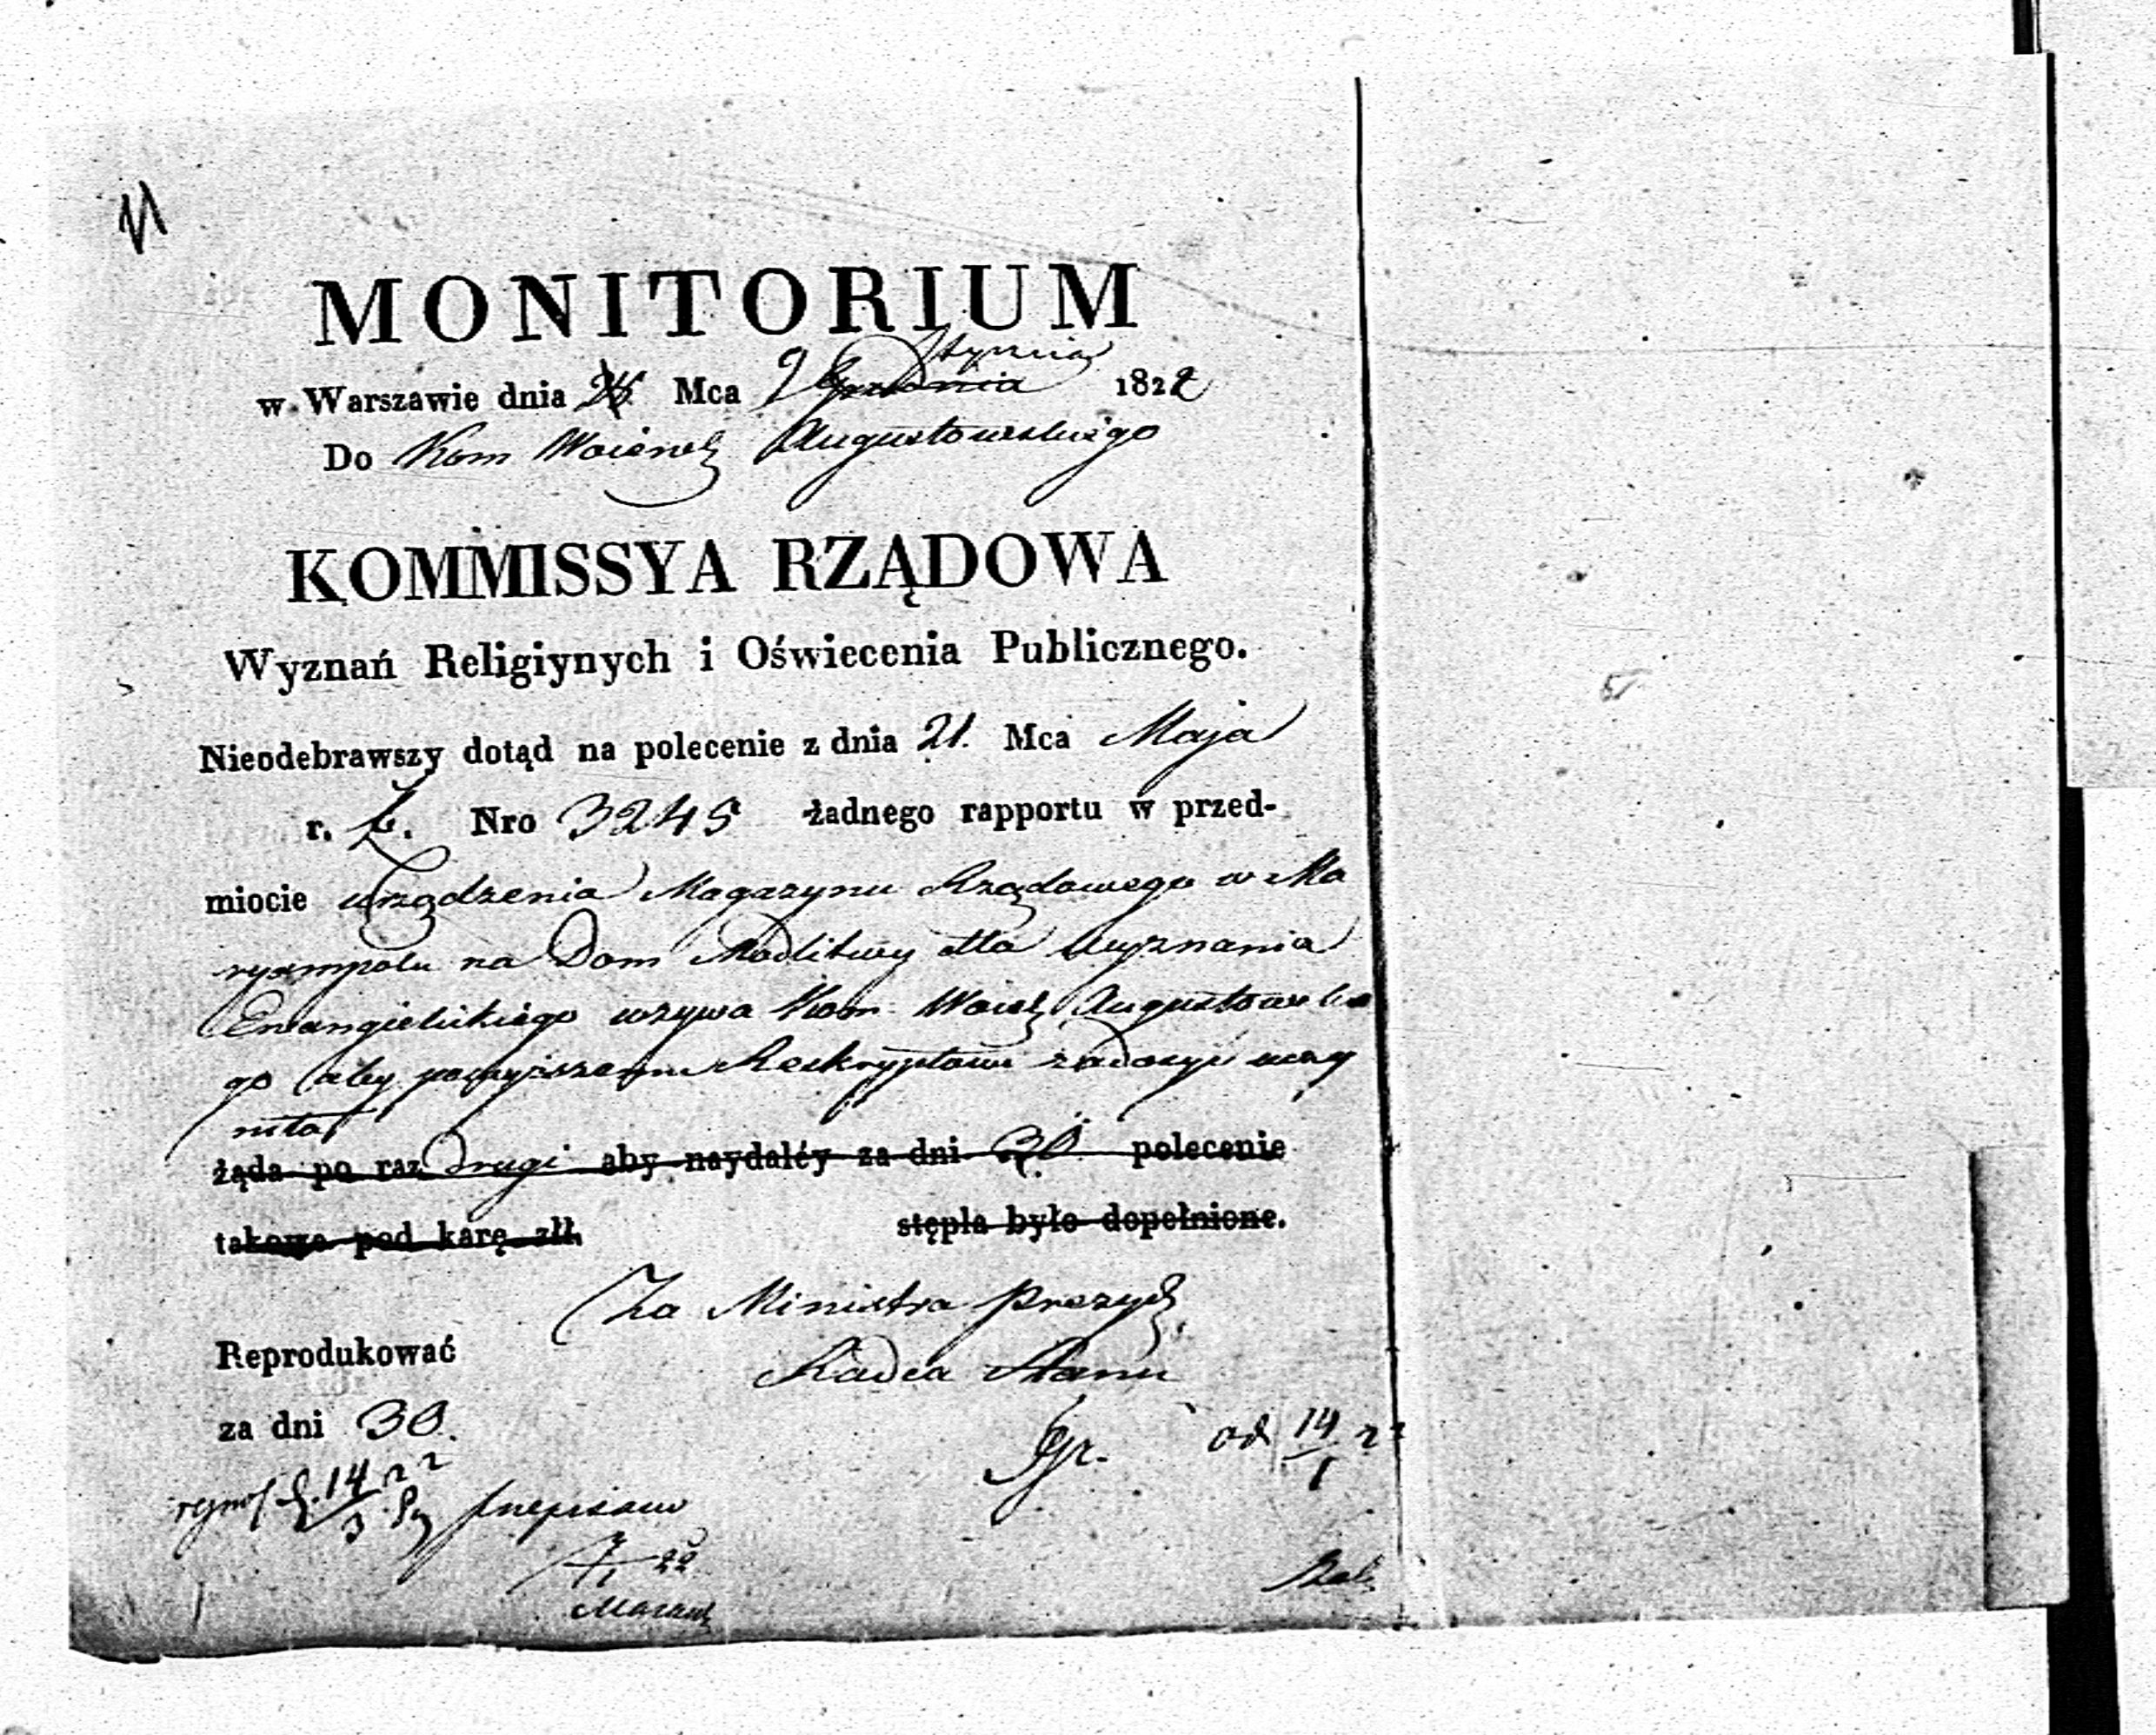 MONITORIUM
Stycznia
w Warszawie dnia 24. Mca 9 Grudnia 1822
Do Kom Woiewdz Augustowskiego
KOMMISSYA RZĄDOWA
Wyznań Religiynych i Oświecenia Publicznego.
Nieodebrawszy dotąd na polecenie z dnia 21. Mca Maja
r. z. Nro 3245 żadnego rapportu w przed-
miocie urządzenia Magazynu Rządowego w Ma
ryampolu na Dom Modlitwy dla wyznania
Ewangielickiego wzywa Kom. Woiewdz Augustowskie
go aby powyższemu Reskryptowi zadosyć uczy
niła
żąda po raz drugi aby naydaléy za dni 30. polecenie
takowe pod karę złł. stępla było dopełnione.
Za Ministra Prezyd.
Radca Stanu
Reprodukować
za dni 30.
Gr. od 14/1 22
14/3 22 przepisano
22